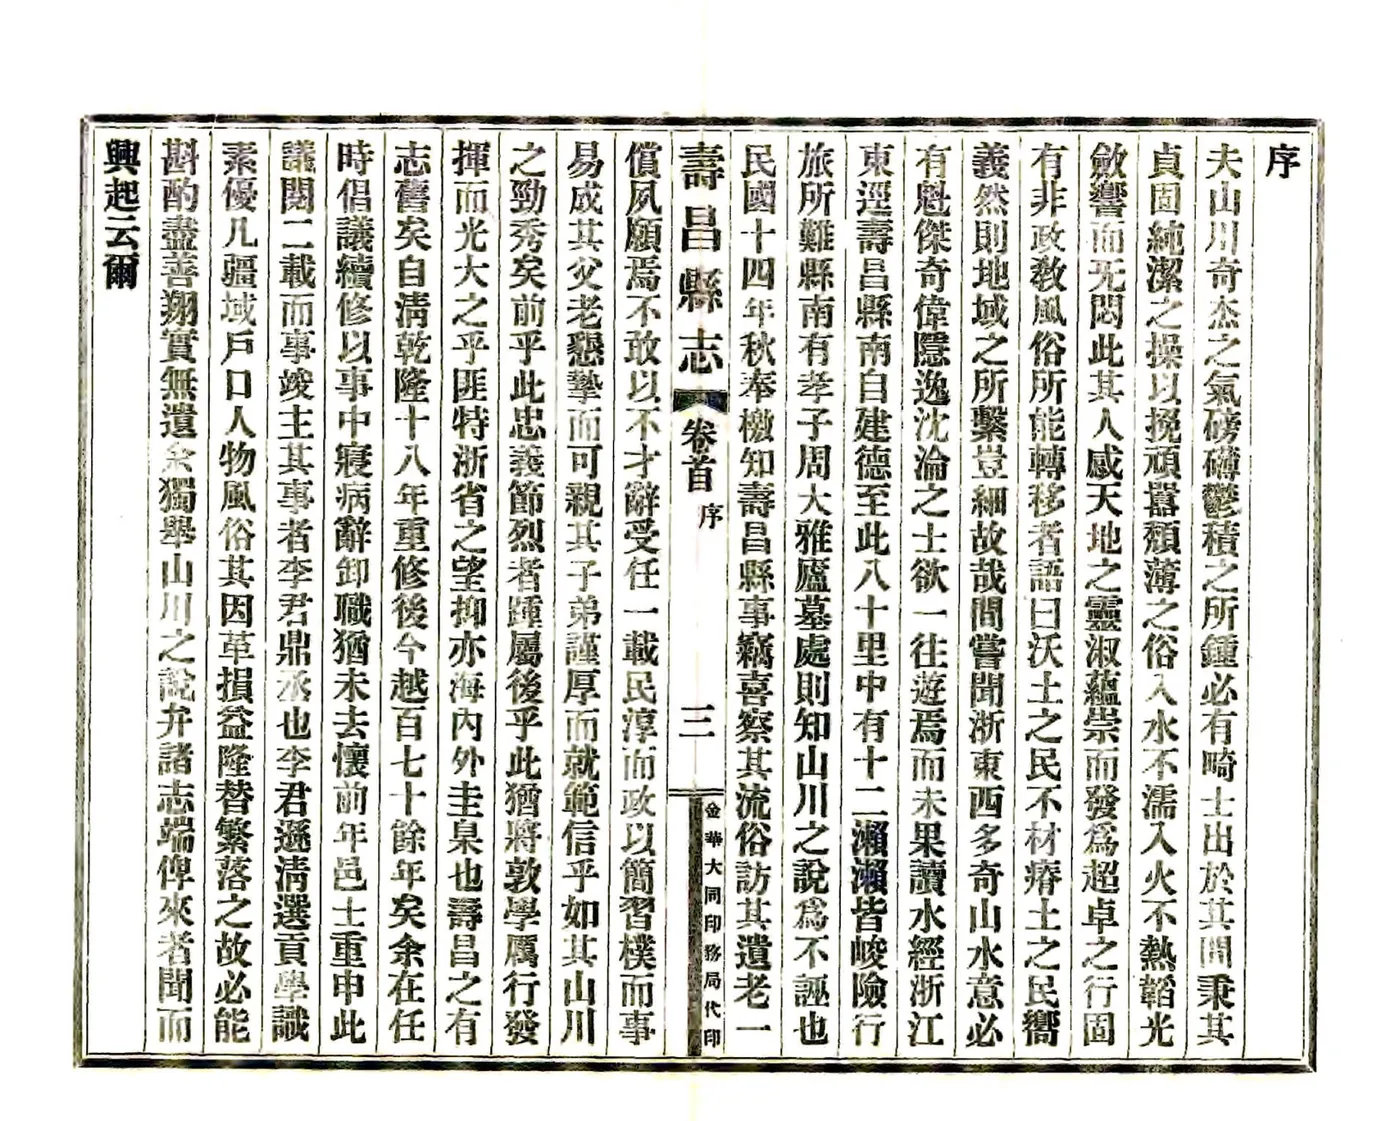 序
夫山川奇杰之氣磅礴鬱積之所鍾必有畸士出於其間秉其
貞固純潔之操以挽頑囂頹薄之俗入水不濡入火不熱韜光
斂響而无悶此其人感天地之靈淑蘊崇而發爲超卓之行固
有非政敎風俗所能轉移者語曰沃土之民不材瘠土之民嚮
義然則地域之所繫豈細故哉間嘗聞浙東西多奇山水意必
有魁傑奇偉隱逸沈淪之士欲一往遊焉而未果讀水經浙江
東逕壽昌縣南自建德至此八十里中有十二瀨瀨皆峻險行
旅所難縣南有孝子周大雅廬墓處則知山川之說爲不誣也
民國十四年秋奉檄知壽昌縣事竊喜察其流俗訪其遺老一
壽昌縣志
卷首
序
三
金華大同印務局代印
償夙願焉不敢以不才辭受任一載民淳而政以簡習樸而事
易成其父老懇摯而可親其子弟謹厚而就範信乎如其山川
之勁秀矣前乎此忠義節烈者踵屬後乎此猶將敦學厲行發
揮而光大之乎匪特浙省之望抑亦海內外圭臬也壽昌之有
志舊矣自淸乾隆十八年重修後今越百七十餘年矣余在任
時倡議續修以事中寢病辭卸職猶未去懷前年邑士重申此
議閱二載而事竣主其事者李君鼎丞也李君遜淸選貢學識
素優凡疆域戶口人物風俗其因革損益隆替繁落之故必能
斟酌盡善翔實無遺余獨舉山川之說弁諸志端俾來者聞而
興起云爾